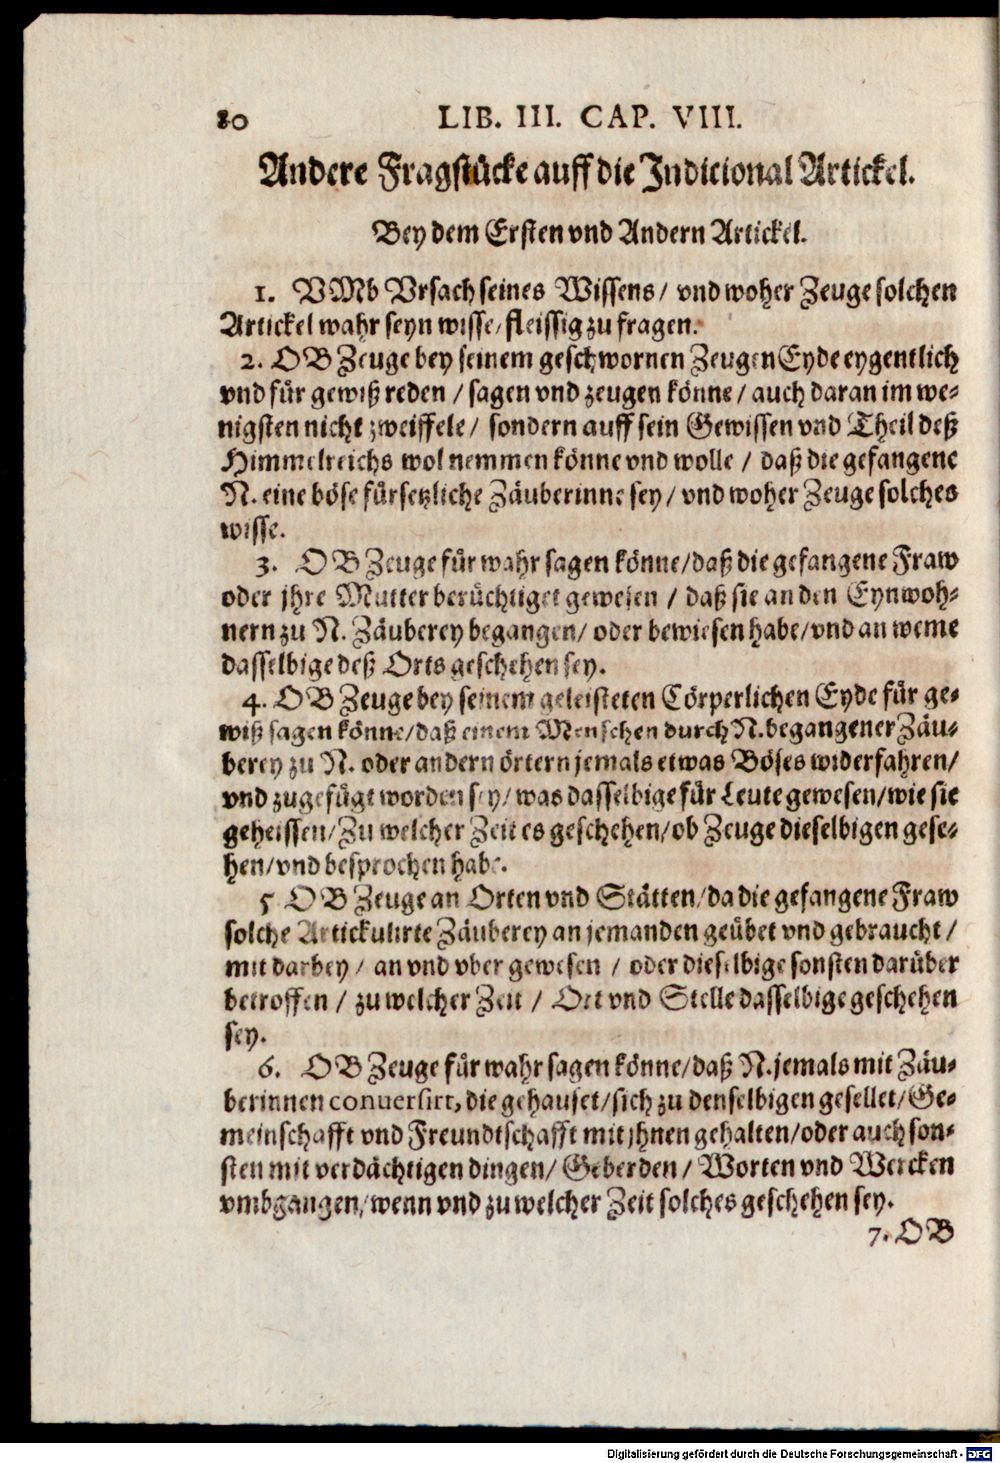 80 LIB. III. CAP. VIII.
Andere Fragstücke auff die Indicional Artickel.
Bey dem Ersten vnd Andern Artickel.
1. VMb Vrsach seines Wissens/ vnd woher Zeuge solchen
Artickel wahr seyn wisse/ fleissig zu fragen.
2. OB Zeuge bey seinem geschwornen Zeugen Eyde eygentlich
vnd für gewiß reden / sagen vnd zeugen könne / auch daran im we-
nigsten nicht zweiffele / sondern auff sein Gewissen vnd Theil deß
Himmelreichs wol nemmen könne vnd wolle / daß die gefangene
N. eine böse fürsetzliche Zäuberinne sey / vnd woher Zeuge solches
wisse.
3. OB Zeuge für wahr sagen könne/daß die gefangene Fraw
oder jhre Mutter berüchtiget gewesen / daß sie an den Eynwoh-
nern zu N. Zäuberey begangen/ oder bewiesen habe/vnd an weme
dasselbige deß Orts geschehen sey.
4. OB Zeuge bey seinem geleisteten Cörperlichen Eyde für ge-
wiß sagen könne/daß einem Menschen durch N. begangener Zäu-
berey zu N. oder andern örtern jemals etwas Böses widerfahren/
vnd zugefügt worden sey/ was dasselbige für Leute gewesen/wie sie
geheissen/Zu welcher Zeit es geschehen/ob Zeuge dieselbigen gese-
hen/vnd besprochen habe.
5 OB Zeuge an Orten vnd Stätten/da die gefangene Fraw
solche Artickulirte Zäuberey an jemanden geübet vnd gebraucht /
mit darbey / an vnd vber gewesen / oder dieselbige sonsten darüber
betroffen / zu welcher Zeit / Ort vnd Stelle dasselbige geschehen
sey.
6. OB Zeuge für wahr sagen könne/daß N. jemals mit Zäu-
berinnen conuersirt, die gehauset/sich zu denselbigen gesellet/Ge-
meinschafft vnd Freundtschafft mit jhnen gehalten/oder auch son-
sten mit verdächtigen dingen/ Geberden / Worten vnd Wercken
vmbgangen/wenn vnd zu welcher Zeit solches geschehen sey.
7. OB
Digitalisierung gefördert durch die Deutsche Forschungsgemeinschaft - DFG